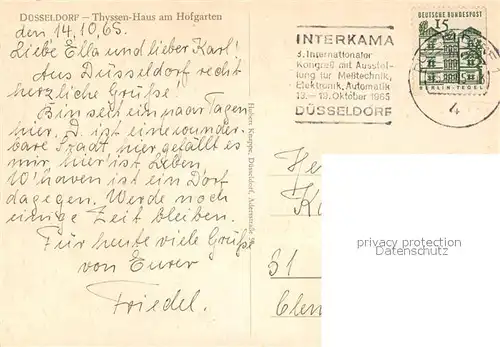 DÜSSELDORF – Thyssen-Haus am Hofgarten
den 14.10.65.
Liebe Ella und lieber Karl!
Aus Düsseldorf recht
herzliche Grüße!
Bin seit ein paar Tagen
hier. D. ist eine wunder-
bare Stadt, hier gefällt es
mir, hier ist Leben
W'haven ist ein Dorf
dagegen. Werde noch
einige Zeit bleiben.
Für heute viele Grüße
von Eurer
Friedel.
Hubert Knepper, Düsseldorf, Adersstraße
INTERKAMA
3. Internationaler
Kongreß mit Ausstel-
lung für Meßtechnik,
Elektronik, Automatik
13.–19. Oktober 1965
DÜSSELDORF
DEUTSCHE BUNDESPOST
15
BERLIN-TEGEL
4
He
K
31
privacy protection
Datenschutz